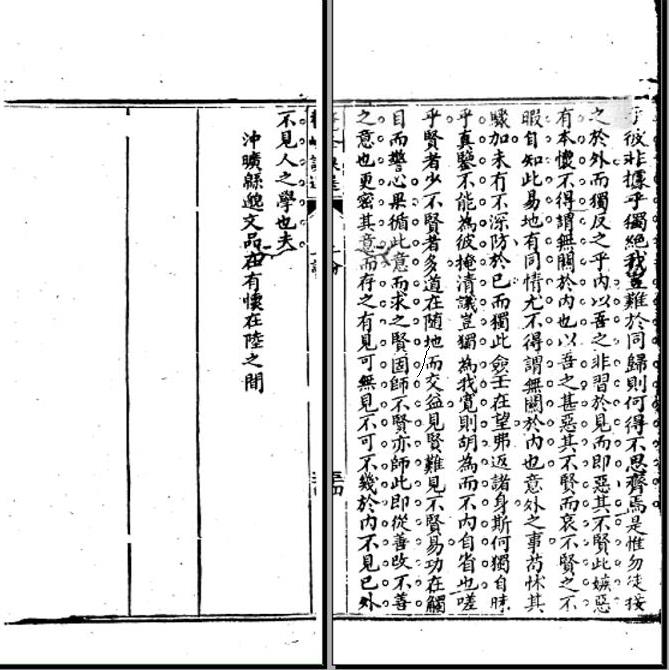 彼非據乎獨絕我豈難於同歸則何得不思齊焉是惟勿徒接
之於外而獨反之乎內以吾之非習於見而即惡其不賢此嫉惡
有本懷不得謂無關於內也以吾之甚惡其不賢而哀不賢之不
暇自知此易地有同情尤不得謂無關於內也意外之事苟怵其
驟加未有不深防於已而獨此僉壬在望弗返諸身斯何獨自昧
乎真鑒不能為彼掩清議豈獨為我寬則胡為而不內自省也嗟
乎賢者少不賢者多道在隨地而交益見賢難見不賢易功在觸
目而警心果循此意而求之賢固師不賢亦師此即從善改不善
之意也更密其意而存之有見可無見不可不幾於內不見已外
不見人之學也夫
沖曠綿邈文品在有懷在陸之間